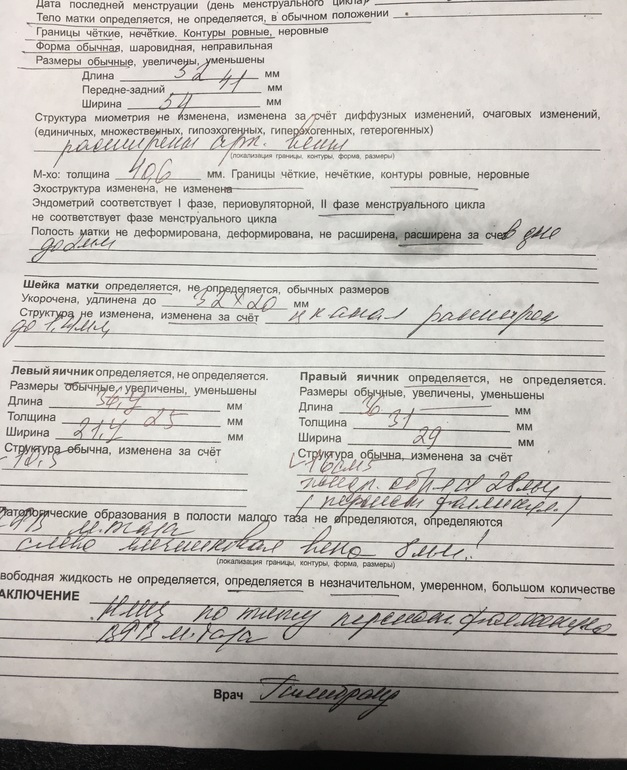 Дата последней менструации (день менструального цикла)
Тело матки определяется, не определяется, в обычном положении
Границы чёткие, нечёткие. Контуры ровные, неровные
Форма обычная, шаровидная, неправильная
Размеры обычные, увеличены, уменьшены
Длина 52 мм
Передне-задний 41 мм
Ширина 54 мм
Структура миометрия не изменена, изменена за счёт диффузных изменений, очаговых изменений,
(единичных, множественных, гипоэхогенных, гиперэхогенных, гетерогенных)
расширены арк. вены
(локализация границы, контуры, форма, размеры)
М-хо: толщина мм. Границы чёткие, нечёткие, контуры ровные, неровные
Эхоструктура изменена, не изменена
Эндометрий соответствует I фазе, периовуляторной, II фазе менструального цикла
не соответствует фазе менструального цикла
Полость матки не деформирована, деформирована, не расширена, расширена за счет в дне
до 2мм
Шейка матки определяется, не определяется, обычных размеров
Укорочена, удлинена до 32х20 мм
Структура не изменена, изменена за счёт ц канал расширен
до 1,4мм
Левый яичник определяется, не определяется.
Размеры обычные, увеличены, уменьшены
Длина мм
Толщина 25 мм
Ширина мм
Структура обычна, изменена за счёт
Правый яичник определяется, не определяется.
Размеры обычные, увеличены, уменьшены
Длина мм
Толщина 31 мм
Ширина 29 мм
Структура обычна, изменена за счёт
28мм
Патологические образования в полости малого таза не определяются, определяются
м. таза
слева яичниковая вена 8мм!
(локализация границы, контуры, форма, размеры)
Свободная жидкость не определяется, определяется в незначительном, умеренном, большом количестве
ЗАКЛЮЧЕНИЕ НМЦ по типу персист. фолликула
ВРВ м. таза
Врач